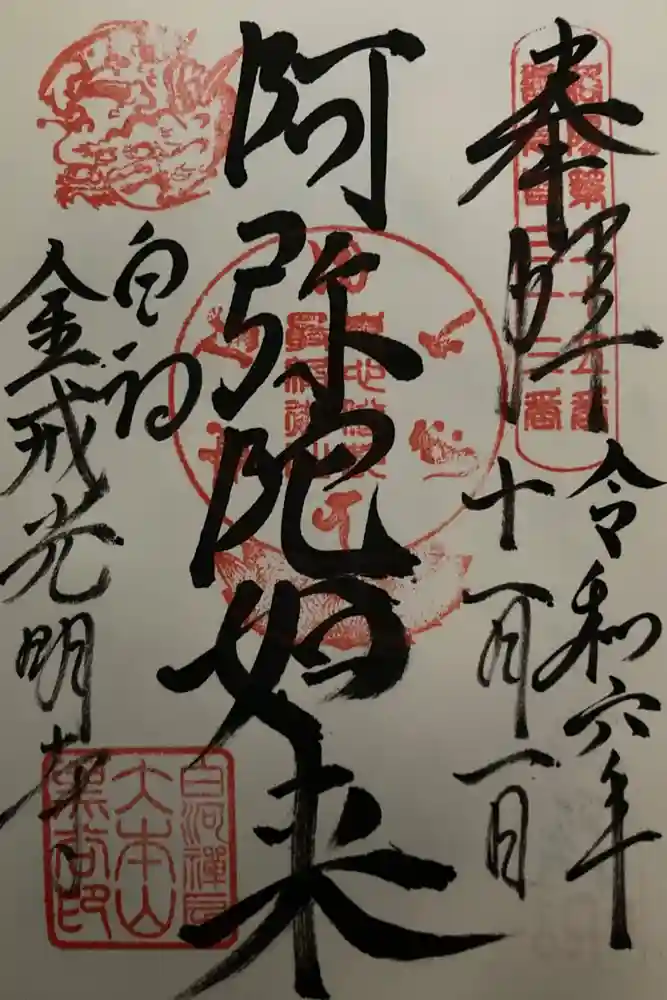 奉拝
令和六年
十一月一日
阿弥陀如来
白河
金戒光明寺
白河禅房
大本山
黒谷印